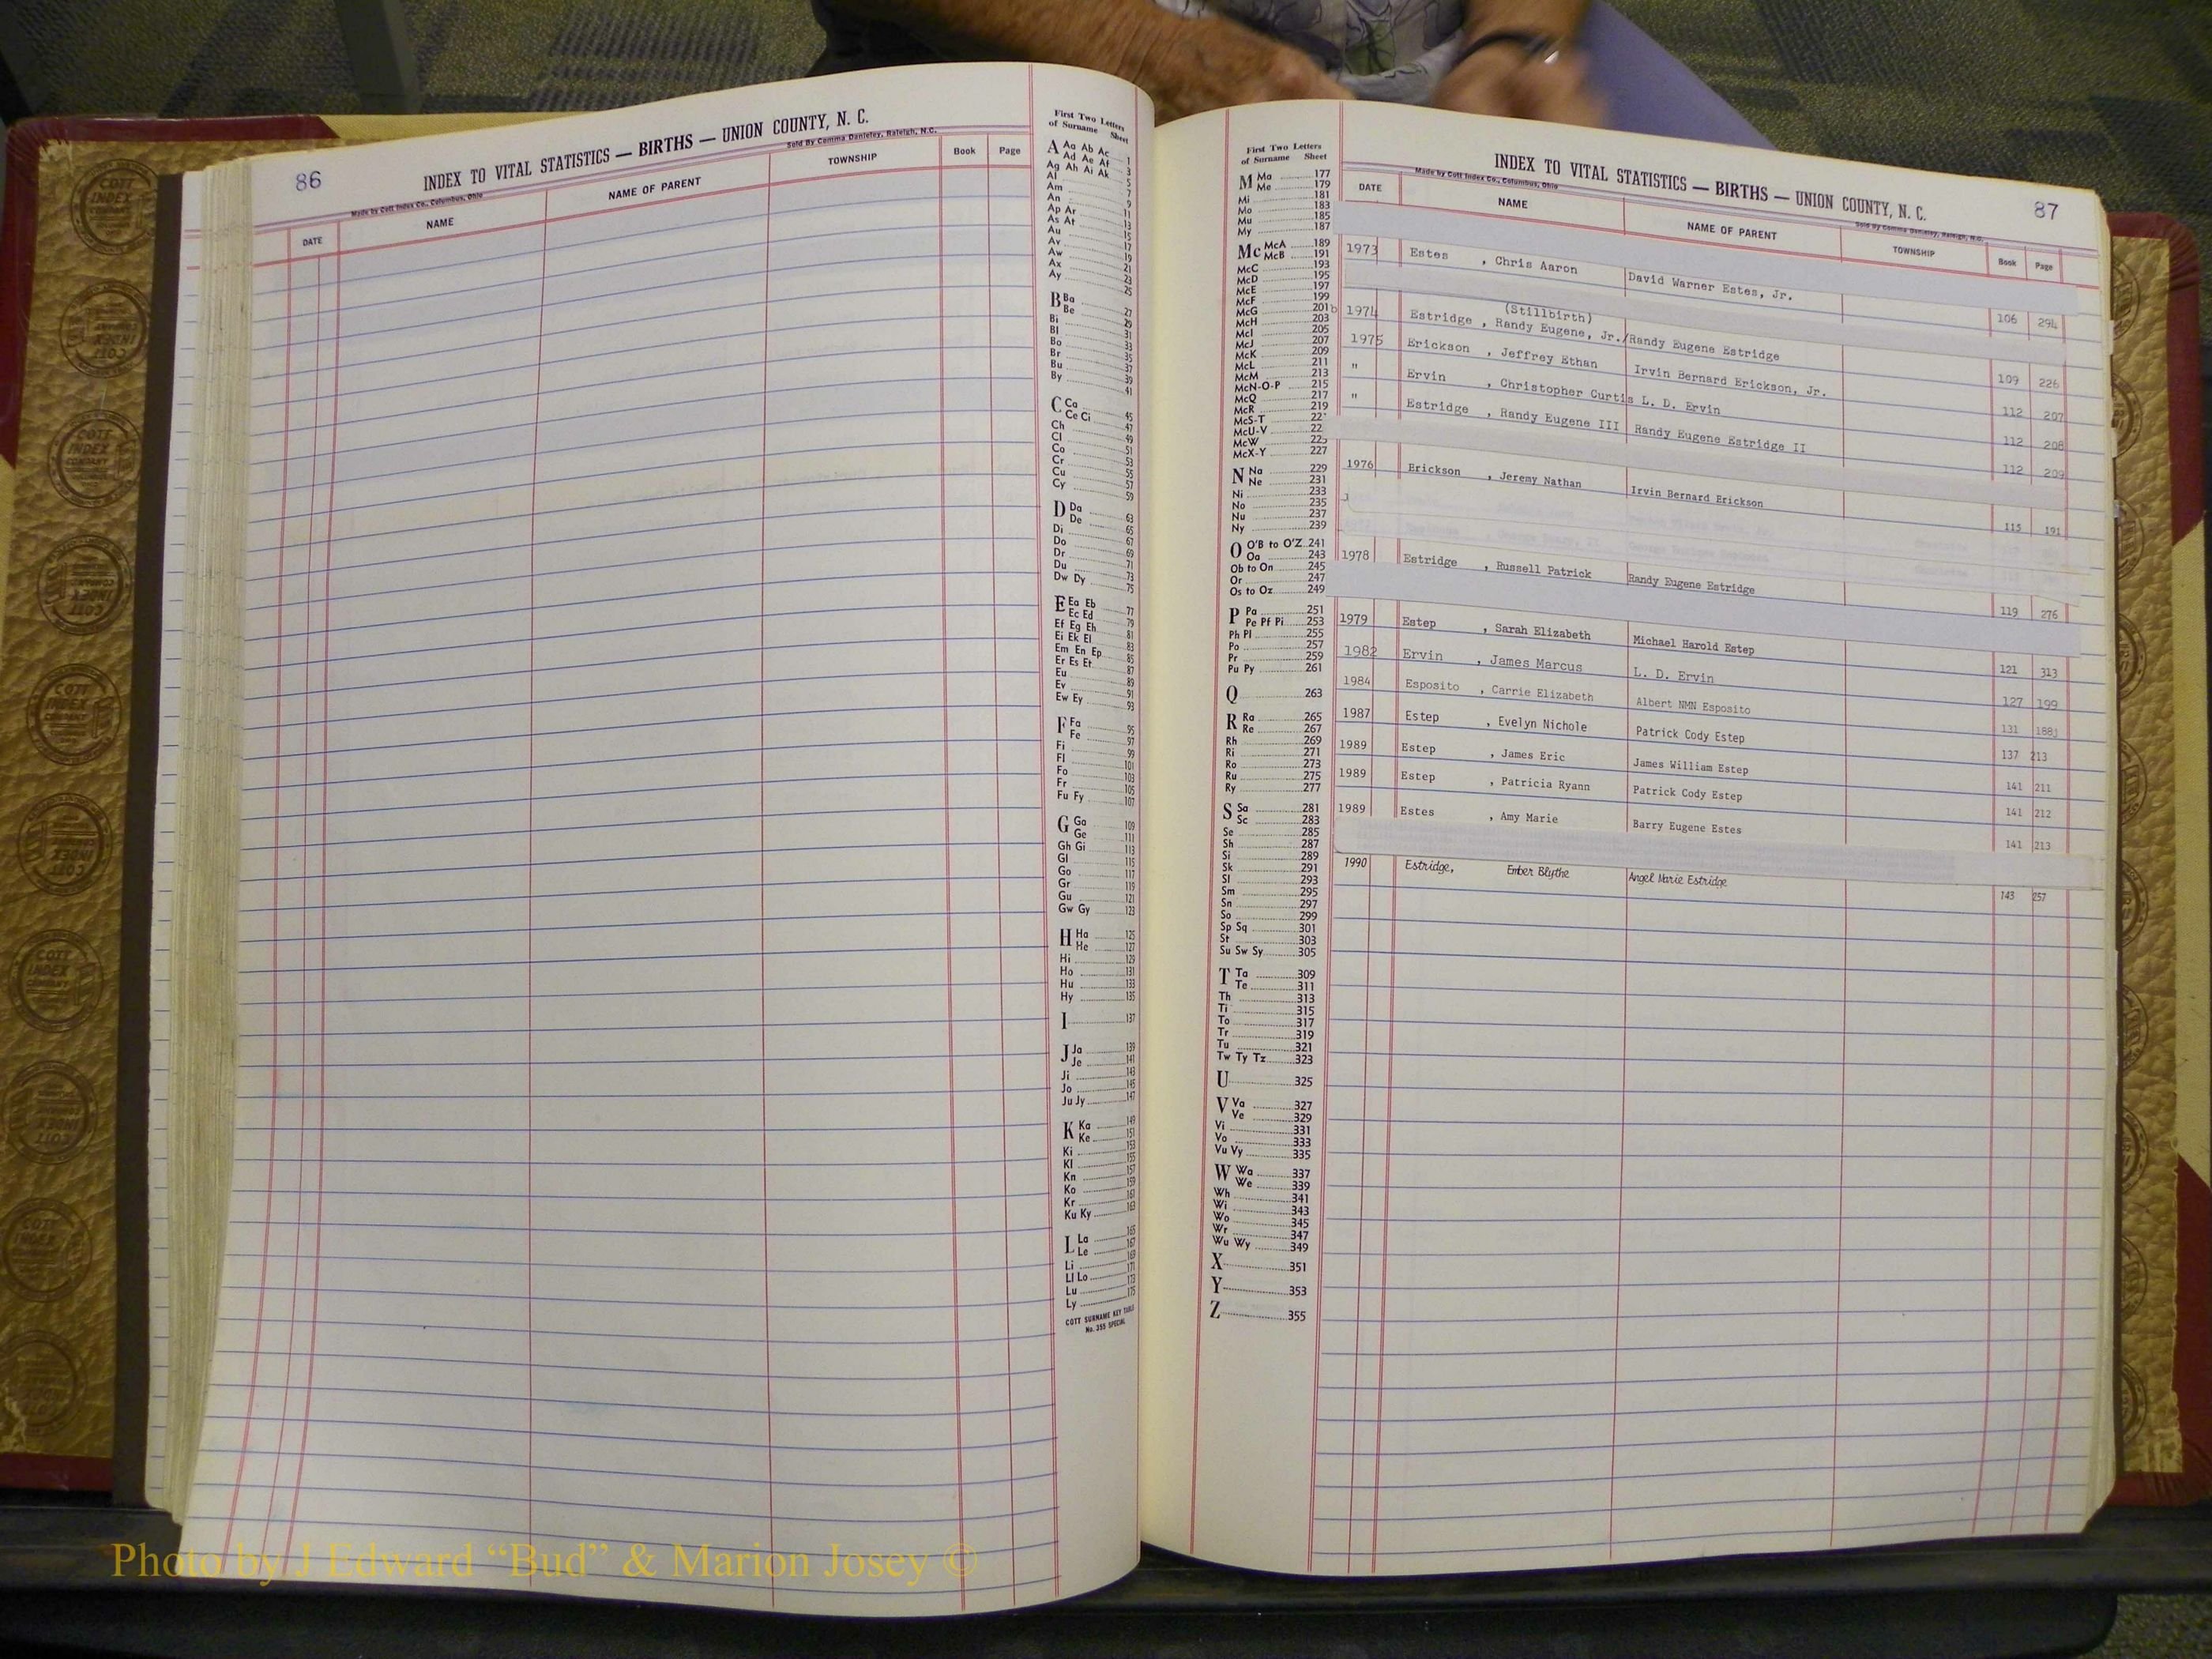 86
INDEX TO VITAL STATISTICS — BIRTHS — UNION COUNTY, N. C.
Made by Cott Index Co., Columbus, Ohio
Sold By Comma Danieley, Raleigh, N.C.
DATE NAME NAME OF PARENT TOWNSHIP Book Page
First Two Letters
of Surname Sheet
A Aa Ab Ac 1
Ad Ae Af 3
Ag Ah Ai Ak 5
Al 7
Am 9
An 11
Ap Ar 13
As At 15
Au 17
Av 19
Aw 21
Ax 23
Ay 25
B Ba 27
Be 29
Bi 31
Bl 33
Bo 35
Br 37
Bu 39
By 41
C Ca 45
Ce Ci 47
Ch 49
Cl 51
Co 53
Cr 55
Cu 57
Cy 59
D Da 63
De 65
Di 67
Do 69
Dr 71
Du 73
Dw Dy 75
E Ea Eb 77
Ec Ed 79
Ef Eg Eh 81
Ei Ek El 83
Em En Ep 85
Er Es Et 87
Eu 89
Ev 91
Ew Ey 93
F Fa 95
Fe 97
Fi 99
Fl 101
Fo 103
Fr 105
Fu Fy 107
G Ga 109
Ge 111
Gh Gi 113
Gl 115
Go 117
Gr 119
Gu 121
Gw Gy 123
H Ha 125
He 127
Hi 129
Ho 131
Hu 133
Hy 135
I 137
J Ja 139
Je 141
Ji 143
Jo 145
Ju Jy 147
K Ka 149
Ke 151
Ki 153
Kl 155
Kn 157
Ko 159
Kr 161
Ku Ky 163
L La 165
Le 167
Li 169
Ll Lo 171
Lu 173
Ly 175
COTT SURNAME KEY TABLE
No. 355 SPECIAL
First Two Letters
of Surname Sheet
M Ma 177
Me 179
Mi 181
Mo 183
Mu 185
My 187
Mc McA 189
McB 191
McC 193
McD 195
McE 197
McF 199
McG 201
McH 203
McI 205
McJ 207
McK 209
McL 211
McM 213
McN-O-P 215
McQ 217
McR 219
McS-T
McU-V
McW
McX-Y 227
N Na 229
Ne 231
Ni 233
No 235
Nu 237
Ny 239
O O'B to O'Z 241
Oa 243
Ob to On 245
Or 247
Os to Oz 249
P Pa 251
Pe Pf Pi 253
Ph Pl 255
Po 257
Pr 259
Pu Py 261
Q 263
R Ra 265
Re 267
Rh 269
Ri 271
Ro 273
Ru 275
Ry 277
S Sa 281
Sc 283
Se 285
Sh 287
Si 289
Sk 291
Sl 293
Sm 295
Sn 297
So 299
Sp Sq 301
St 303
Su Sw Sy 305
T Ta 309
Te 311
Th 313
Ti 315
To 317
Tr 319
Tu 321
Tw Ty Tz 323
U 325
V Va 327
Ve 329
Vi 331
Vo 333
Vu Vy 335
W Wa 337
We 339
Wh 341
Wi 343
Wo 345
Wr 347
Wu Wy 349
X 351
Y 353
Z 355
INDEX TO VITAL STATISTICS — BIRTHS — UNION COUNTY, N. C.
87
Made by Cott Index Co., Columbus, Ohio
Sold By Comma Danieley, Raleigh, N.C.
DATE NAME NAME OF PARENT TOWNSHIP Book Page
1973 Estes , Chris Aaron David Warner Estes, Jr. 106 294
(Stillbirth)
1974 Estridge , Randy Eugene, Jr./Randy Eugene Estridge 109 226
1975 Erickson , Jeffrey Ethan Irvin Bernard Erickson, Jr. 112 207
" Ervin , Christopher Curtis L. D. Ervin 112 208
" Estridge , Randy Eugene III Randy Eugene Estridge II 112 209
1976 Erickson , Jeremy Nathan Irvin Bernard Erickson 115 191
1978 Estridge , Russell Patrick Randy Eugene Estridge 119 276
1979 Estep , Sarah Elizabeth Michael Harold Estep 121 313
1982 Ervin , James Marcus L. D. Ervin 127 199
1984 Esposito , Carrie Elizabeth Albert NMN Esposito 131 188
1987 Estep , Evelyn Nichole Patrick Cody Estep 137 213
1989 Estep , James Eric James William Estep 141 211
1989 Estep , Patricia Ryann Patrick Cody Estep 141 212
1989 Estes , Amy Marie Barry Eugene Estes 141 213
1990 Estridge, Ember Blythe Angel Marie Estridge 143 257
Photo by J Edward “Bud” & Marion Josey ©